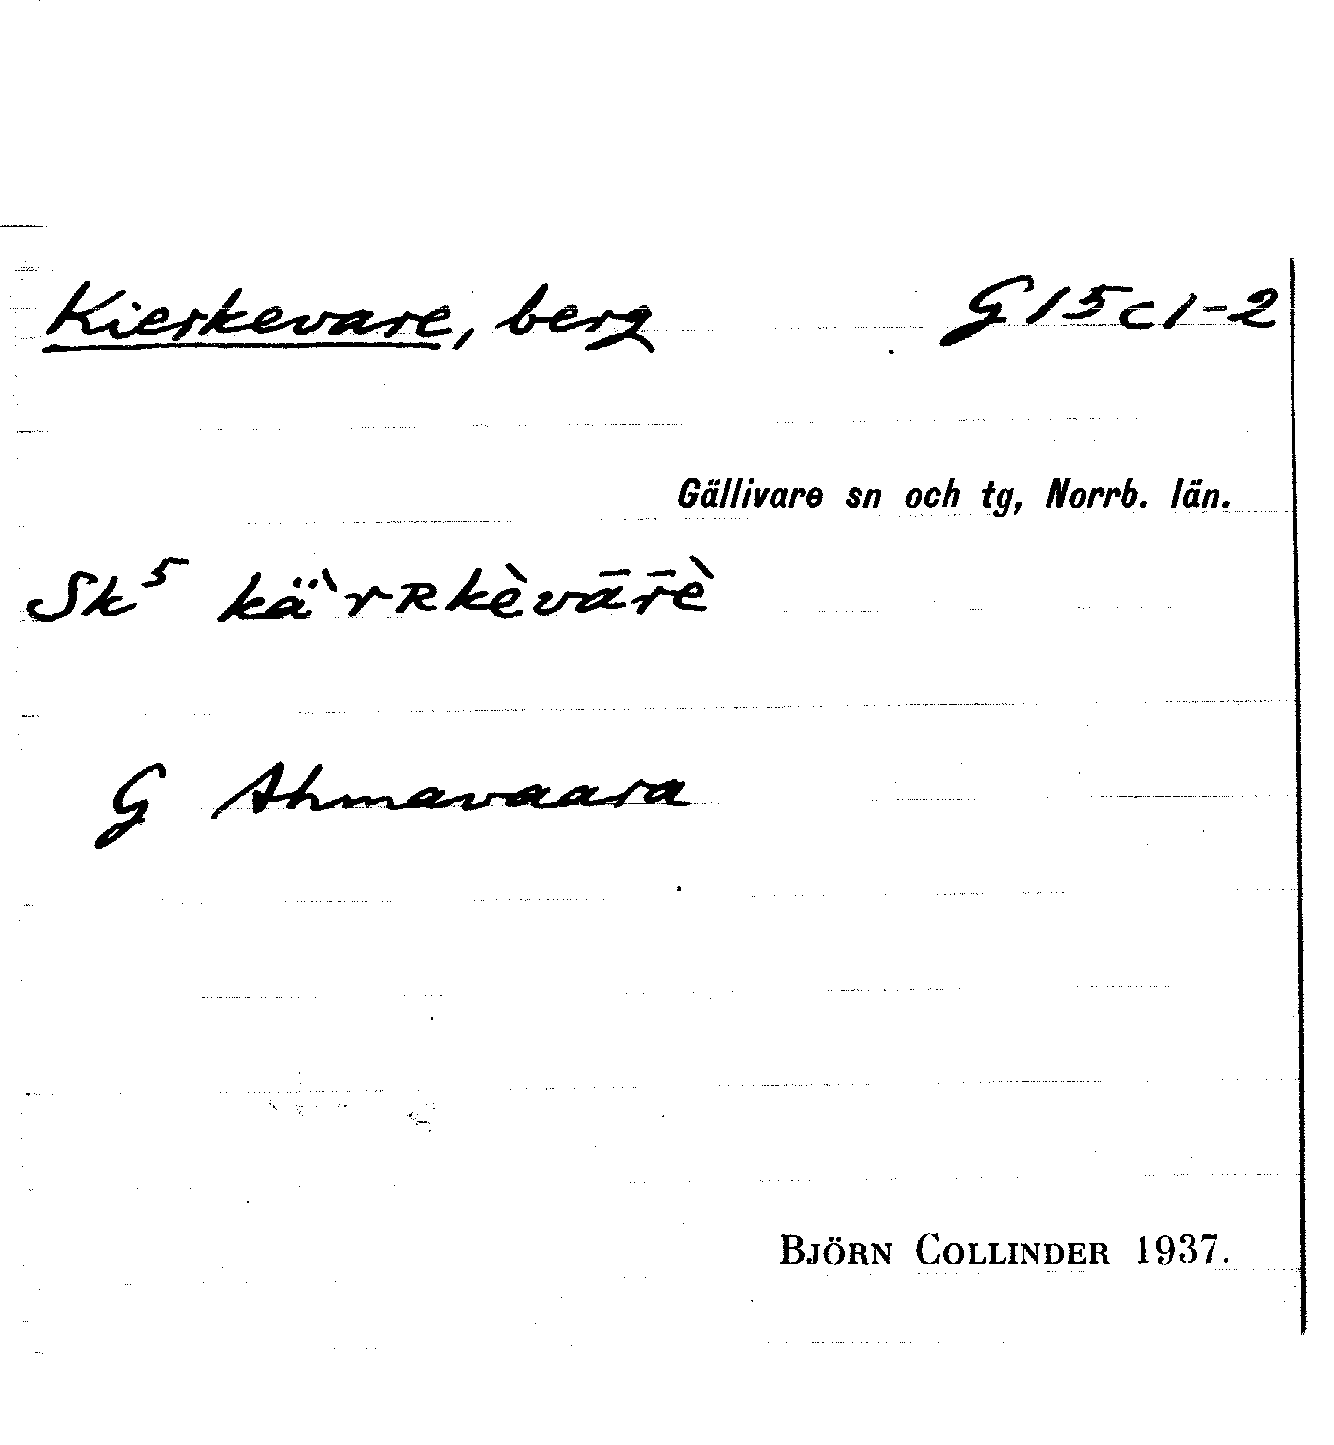 Kierkevare, berg G15c1-2
Gällivare sn och tg, Norrb. län.
Sk⁵ kä̀rʀkèvār̄è
G Ahmavaara
Björn Collinder 1937.